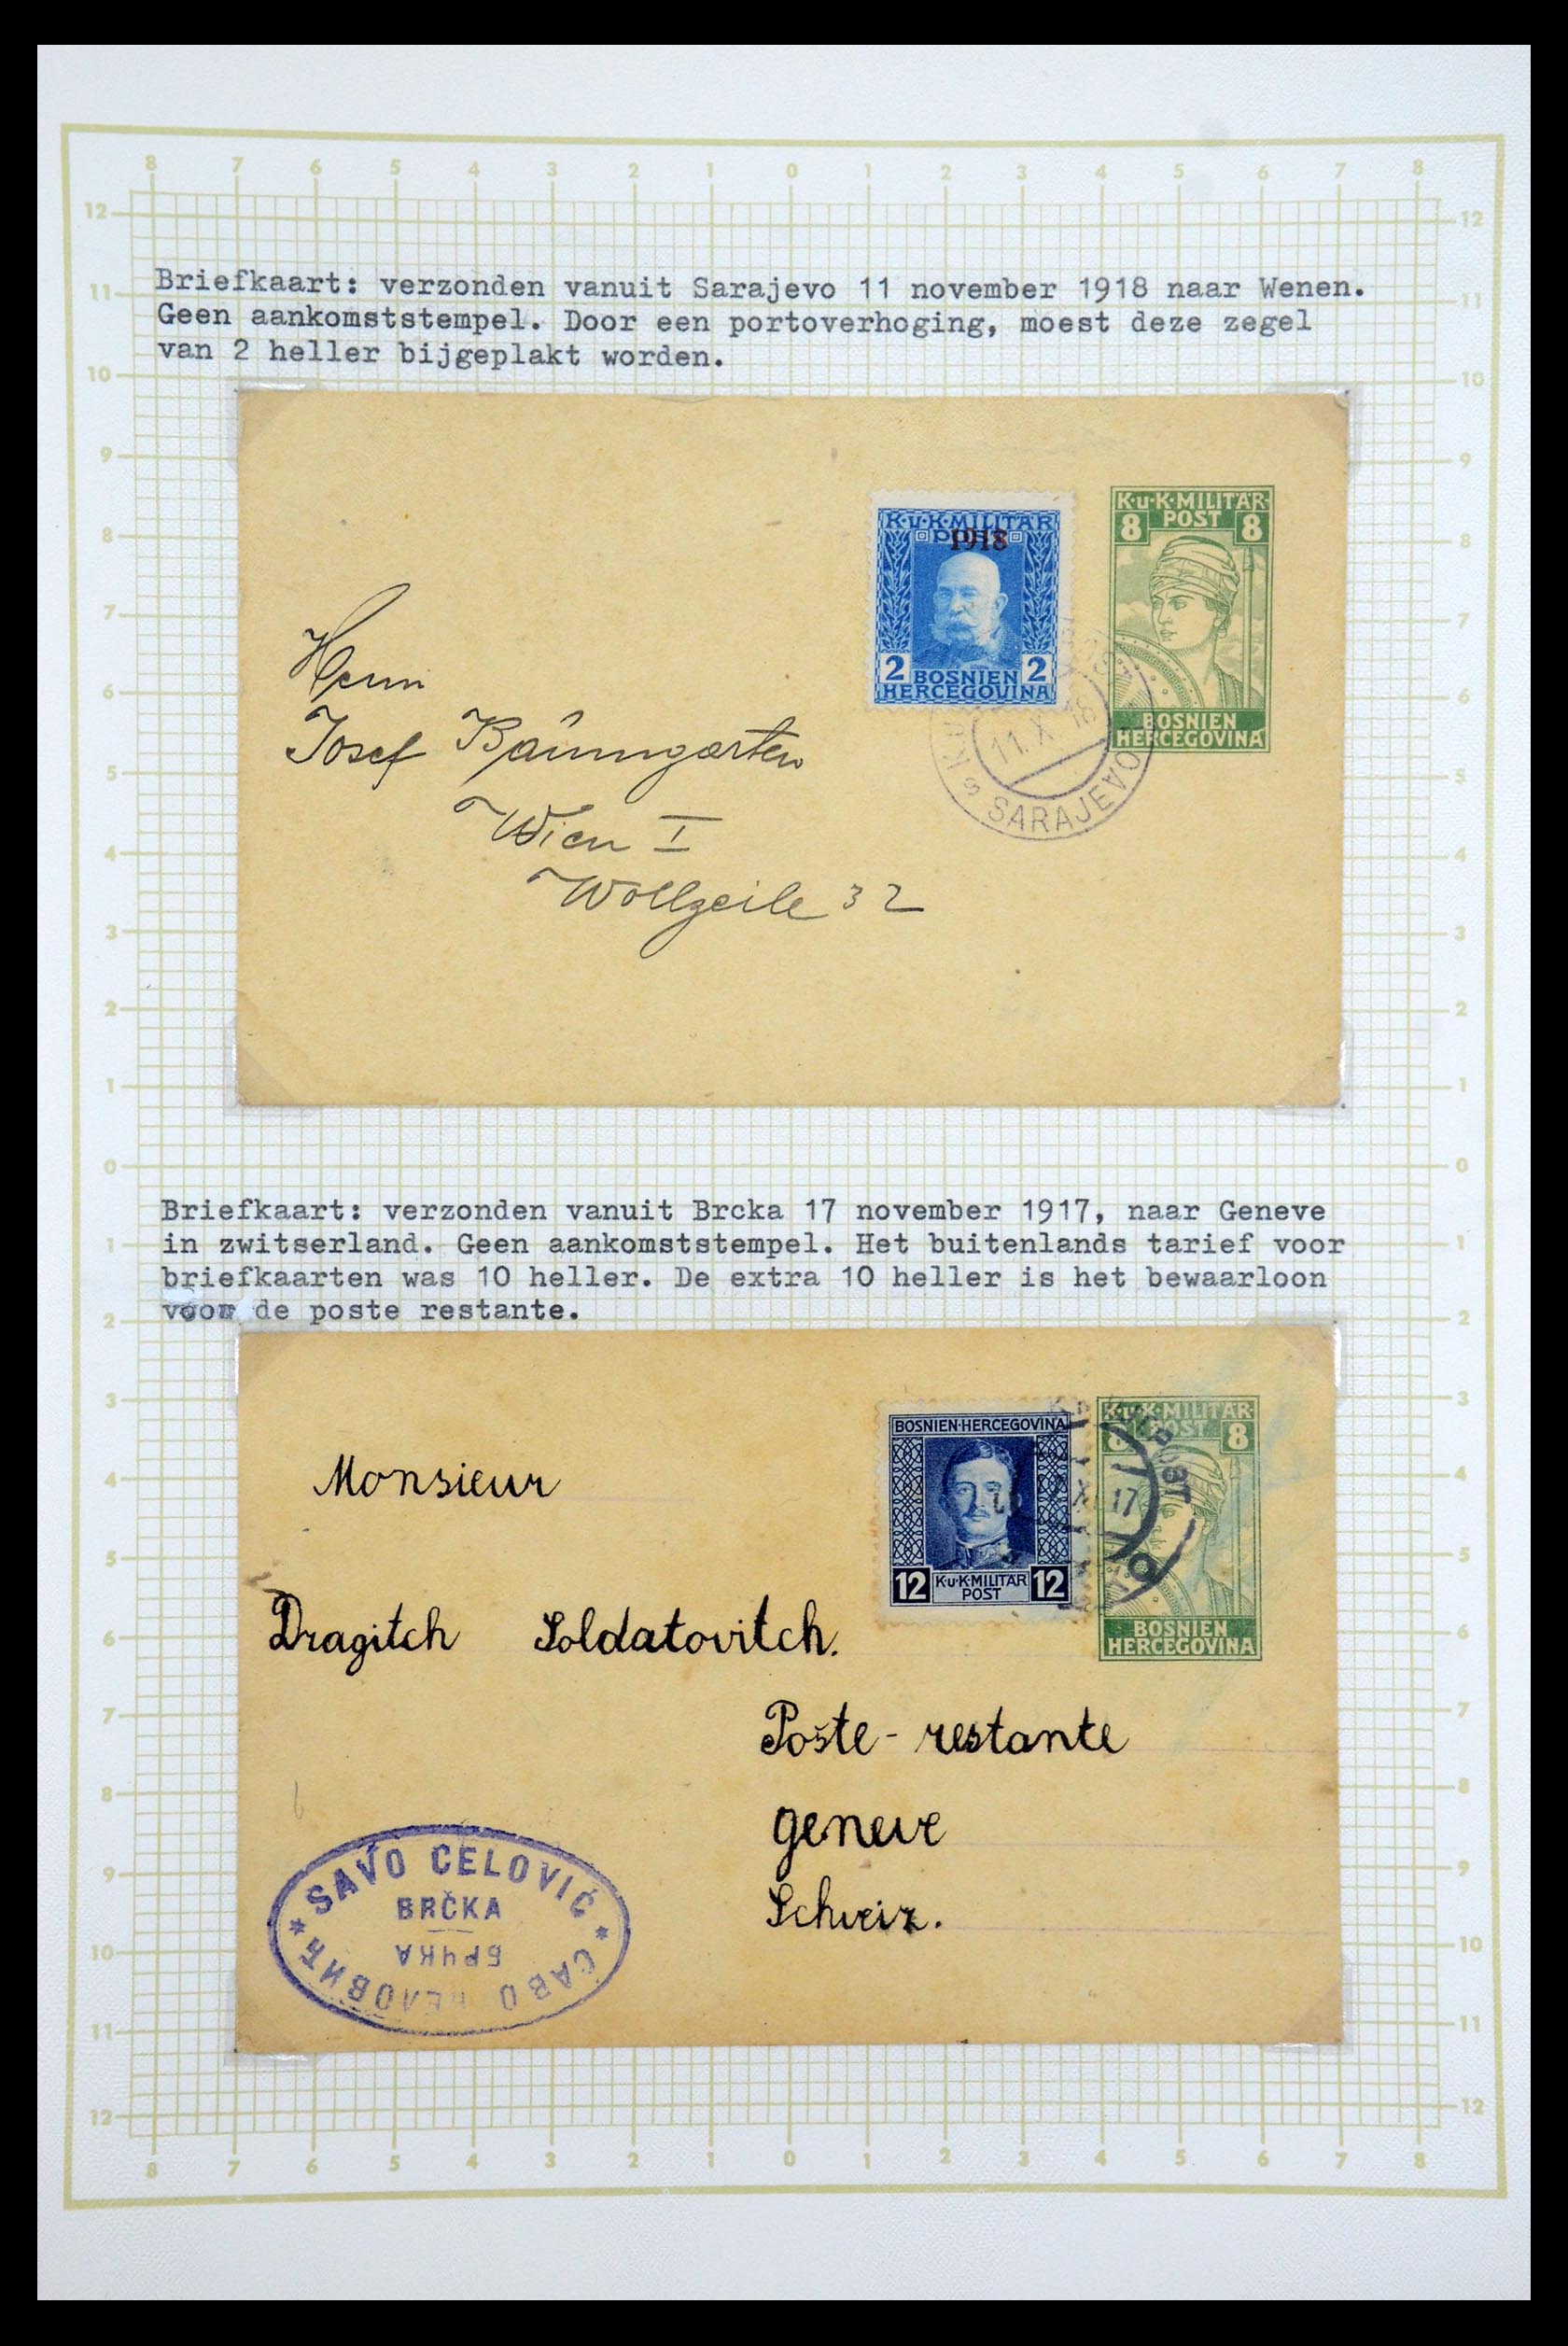 8 7 6 5 4 3 2 1 0 1 2 3 4 5 6 7 8
12 12
Briefkaart: verzonden vanuit Sarajevo 11 november 1918 naar Wenen.
11 11
Geen aankomststempel. Door een portoverhoging, moest deze zegel
van 2 heller bijgeplakt worden.
10 10
9 9
K·u·K·MILITÄR-
POST
8 8
K·u·K·MILITÄR
POST
1918
8 8
7 7
Herrn
2 2
BOSNIEN
HERCEGOVINA
6 6
11.X 18
s SARAJEVO
BOSNIEN
HERCEGOVINA
Josef Baumgarten
5 5
Wien I
4 4
Wollzeile 32
3 3
2 2
1 1
0 0
Briefkaart: verzonden vanuit Brcka 17 november 1917, naar Geneve
1 1
in zwitserland. Geen aankomststempel. Het buitenlands tarief voor
briefkaarten was 10 heller. De extra 10 heller is het bewaarloon
voor de poste restante.
2 2
3 3
BOSNIEN·HERCEGOVINA
K·u·K·MILITÄR-
POST
8 8
Monsieur
4 4
XI 17
5 5
12 12
K·u·K·MILITÄR
POST
Dragitch Soldatovitch.
6 6
BOSNIEN
HERCEGOVINA
7 7
Poste-restante
8 8
geneve
9 9
SAVO CELOVIĆ
BRČKA
Schweiz.
БРЧКА
10 10
11 11
12 12
8 7 6 5 4 3 2 1 0 1 2 3 4 5 6 7 8